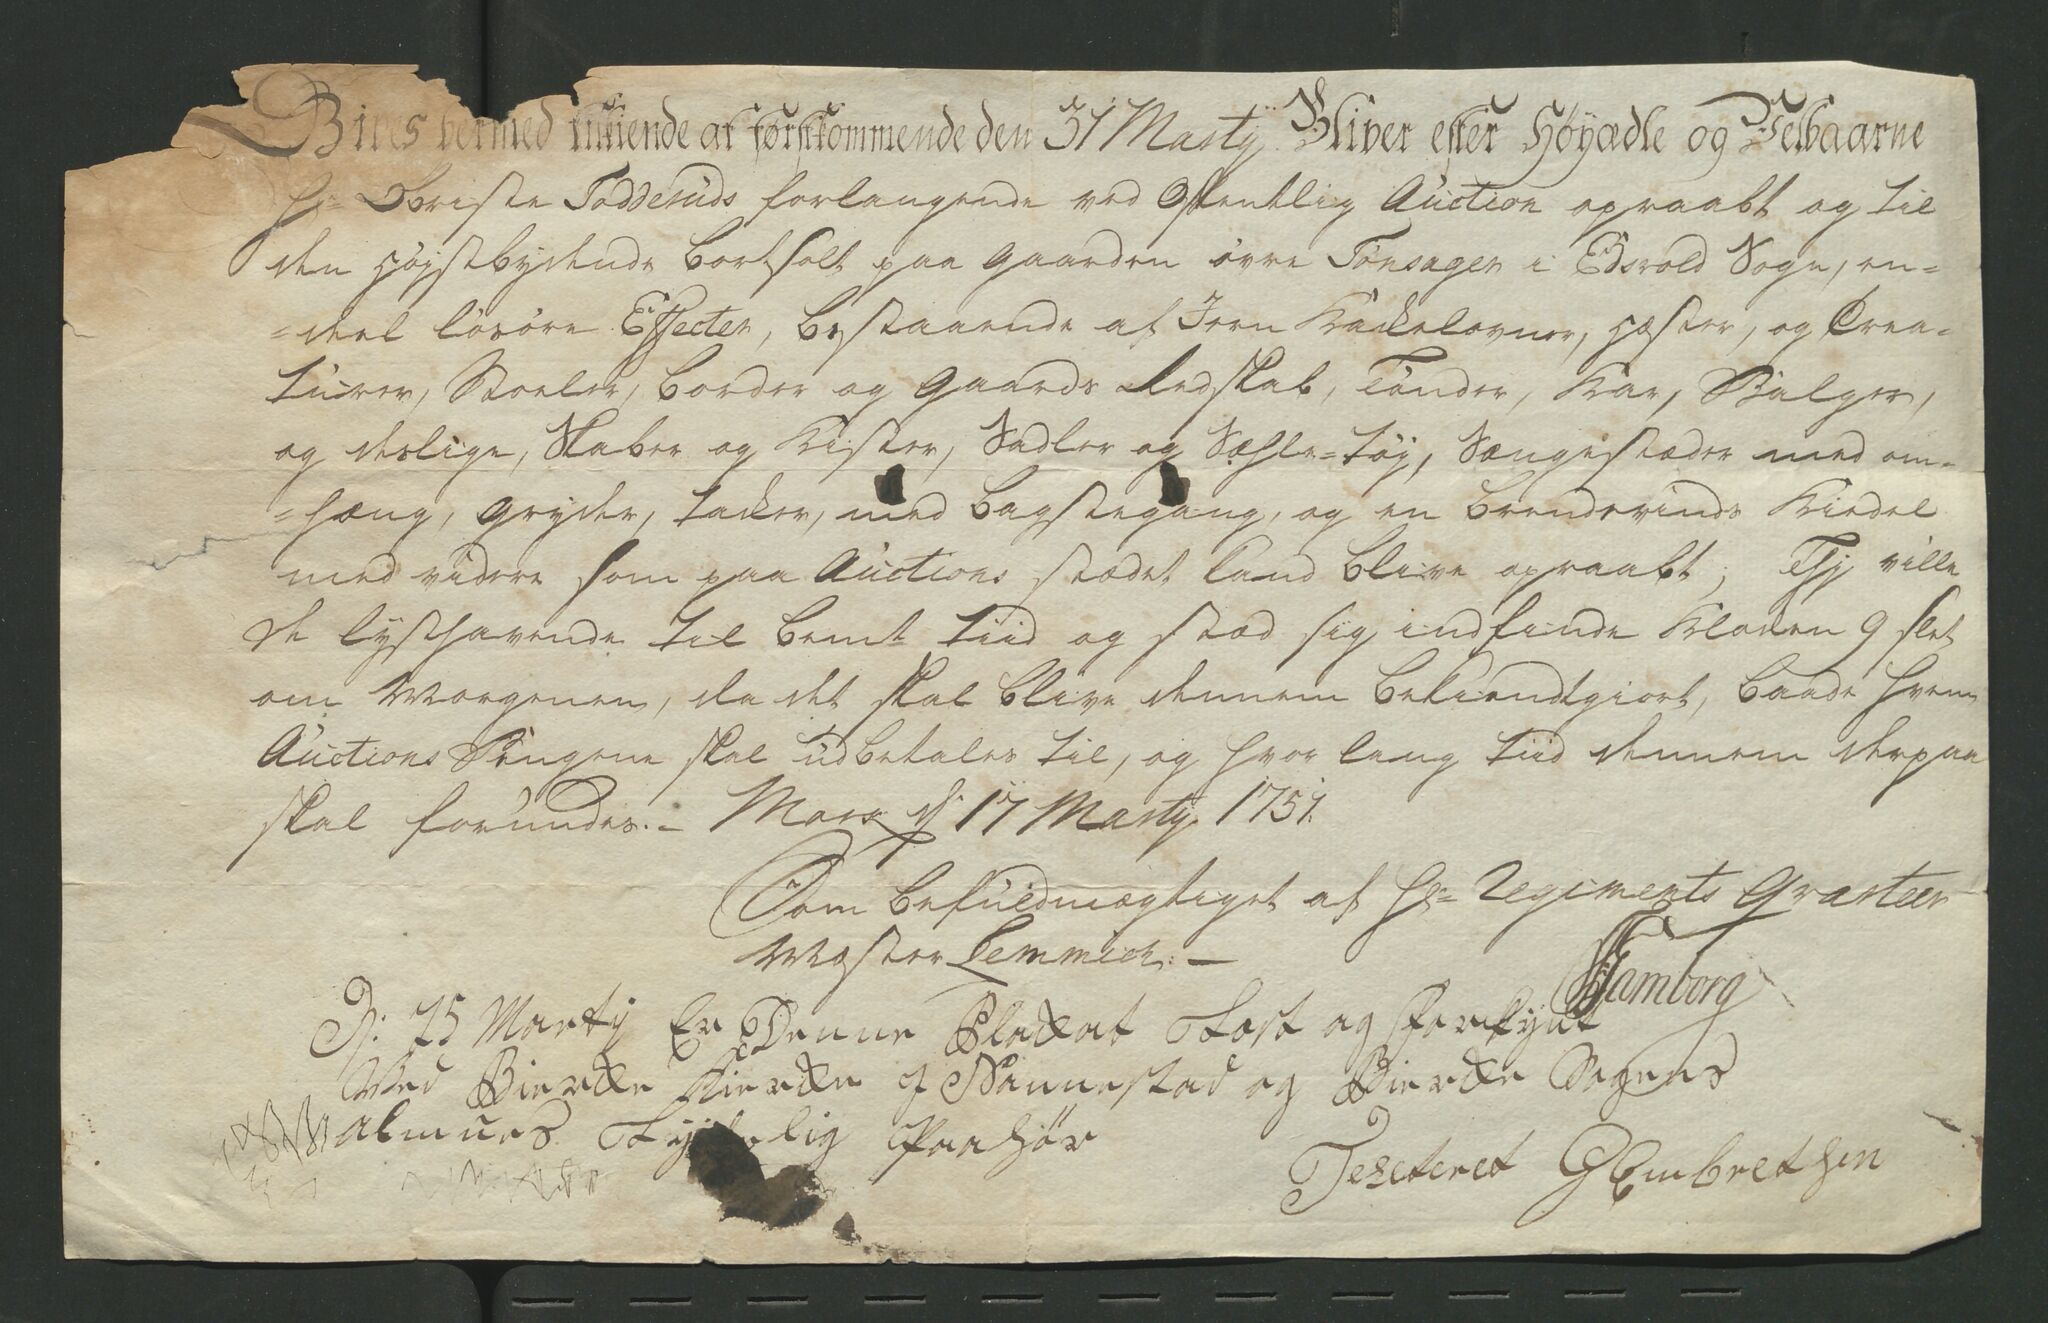 Gives hermed tilkiende at førstkommende den 31 Marty Bliver efter Høyædle og Velbaarne
Hr Obriste Todderuds forlangende ved Offentlig Auction opraabt og til
den Høystbydende bortsolt paa gaarden øvre Tønsager i Edsvold Sogn, en-
-deel løsøre Effecter, bestaaende af Jern Kackelovner, Hæster, og Crea-
turer, Stoeler, border og gaards Redskab, Tønder, Kar, Balger,
og deslige, Skaber og Kister, Sadler og Sæhle-tøy, Sængestæder med om-
-hæng, gryder, tacker, med bagstegang, og en brendevinds Kiedel
med videre som paa Auctions stædet kand blive opraabt; Thj ville
de lysthavende til bemt tiid og stæd sig indfinde Klocken 9 slet
om Morgenen, da det skal blive dennem bekiendtgiort, baade hvem
Auctions Pengene skal udbetales til, og hvor lang tiid dennem derpaa
skal forundes.- Moss d 17 Marty 1751.
Som befuldmægtiget af Hr Regiments Qvarteer
Mæster Lemmich.-
Hamborg
D: 25 Marty Er Denne Plakat Læst og Forkynt
Ved Bierke Kierke J Nannestad og Bierke Sogens
Almues Tydelig Paahør
Testeret GEmbrethsen